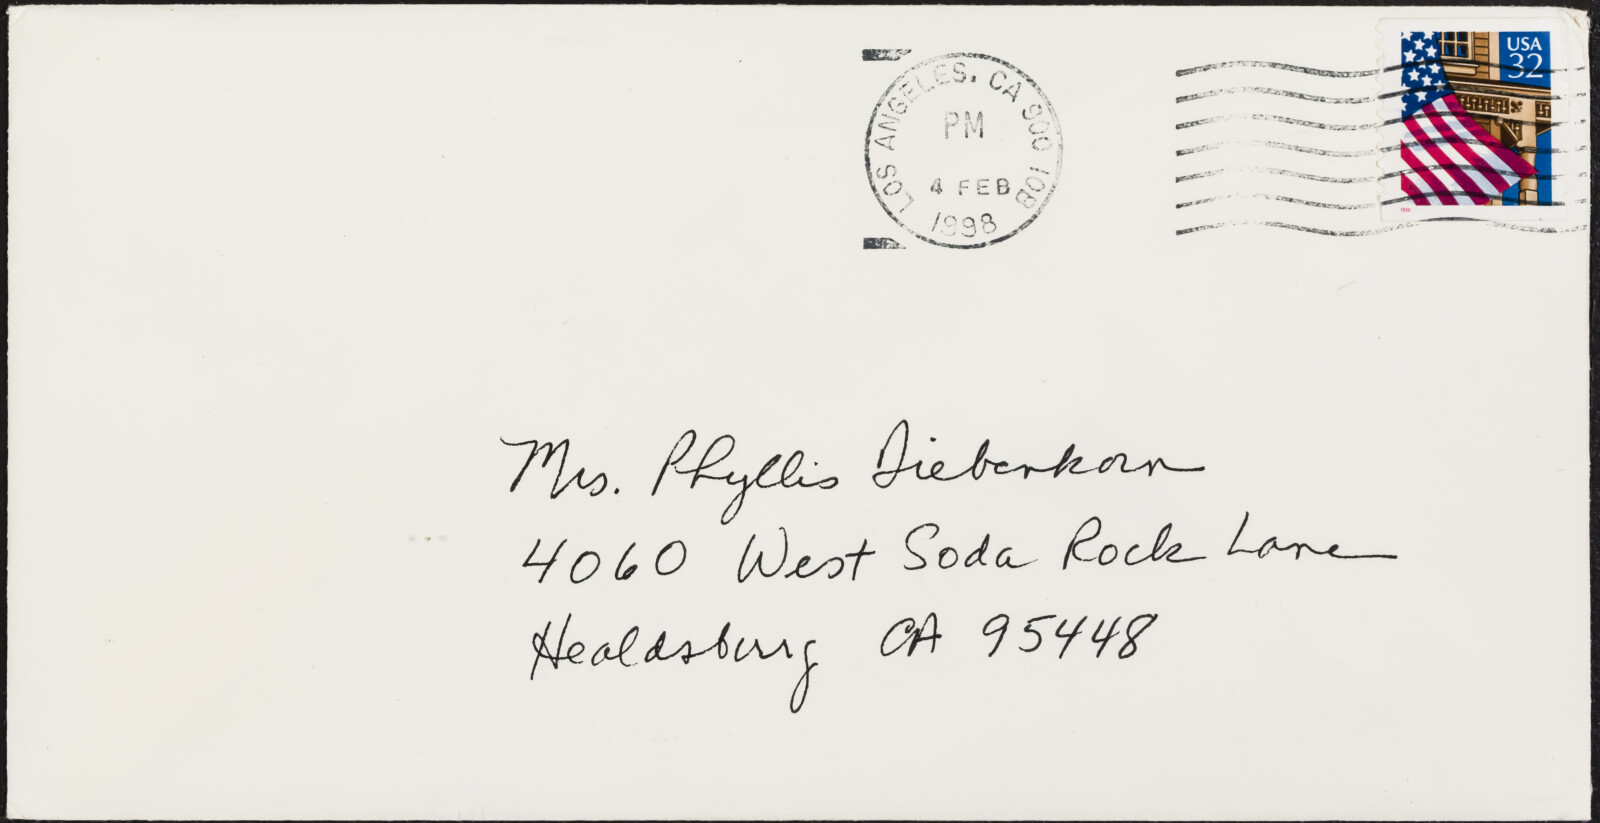 LOS ANGELES, CA 900 10B
PM
4 FEB
1998
USA
32
Mrs. Phyllis Diebenkorn
4060 West Soda Rock Lane
Healdsburg CA 95448